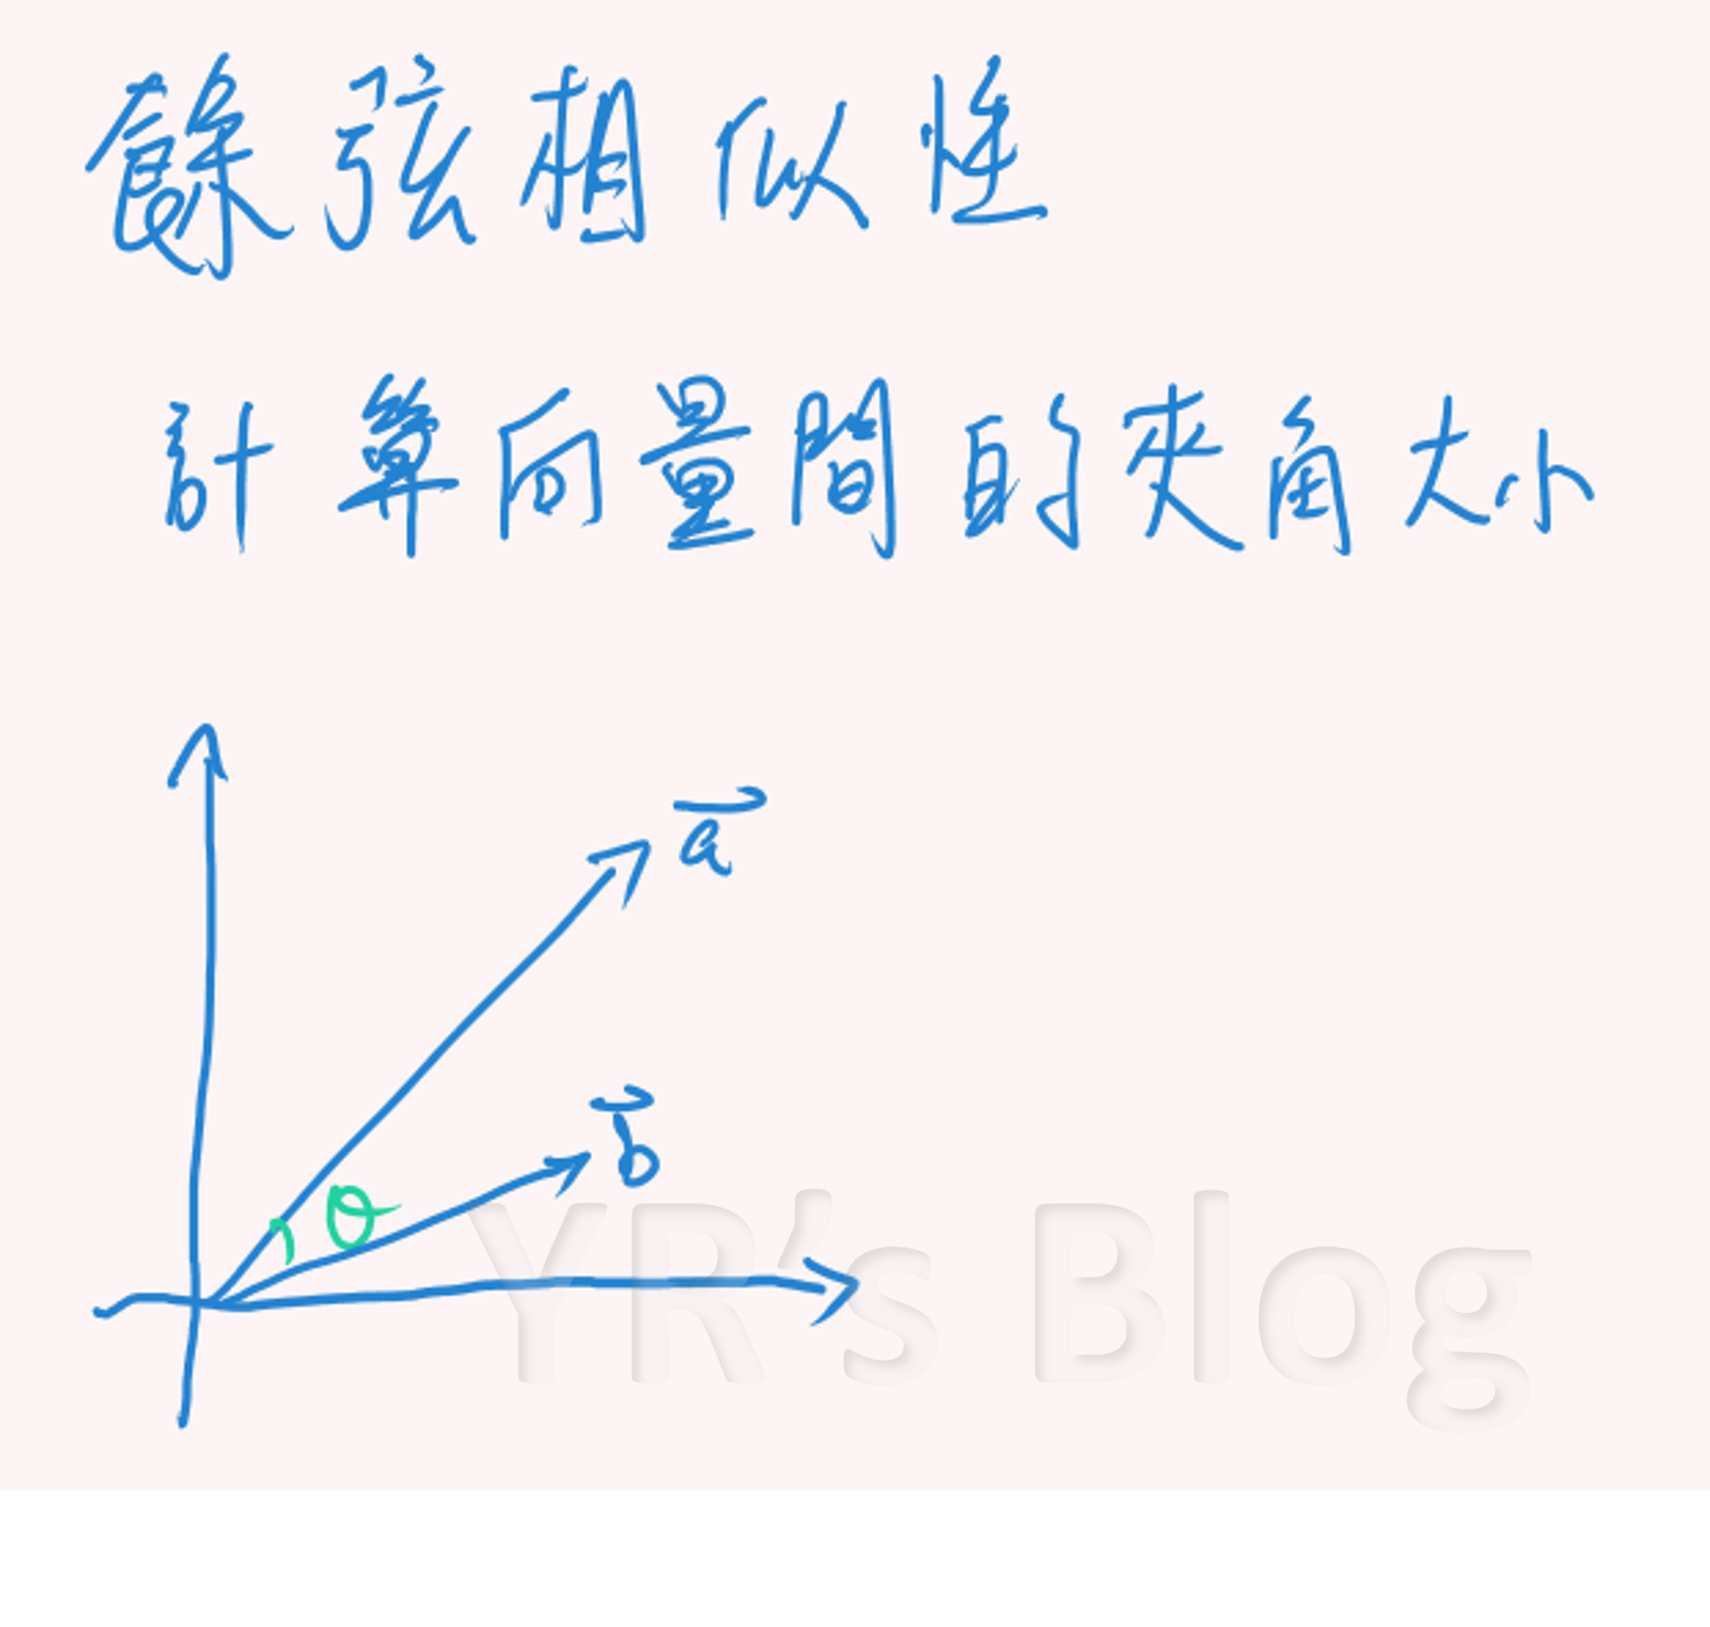 餘弦相似性
計算向量間的夾角大小
a
b
θ
YR's Blog